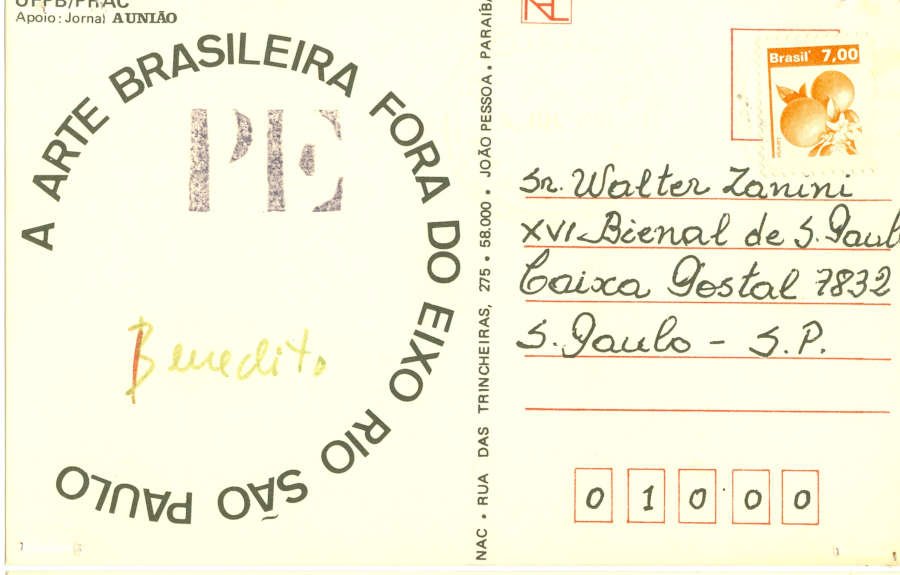 UFPB/PRAC
Apoio: Jornal A UNIÃO
A ARTE BRASILEIRA FORA DO EIXO RIO SÃO PAULO
PE
Benedito
NAC • RUA DAS TRINCHEIRAS, 275 • 58.000 • JOÃO PESSOA • PARAÍBA
Brasil 7,00
Sr. Walter Zanini
XVI Bienal de S. Paulo
Caixa Postal 7832
S. Paulo - S.P.
0 1 0 0 0